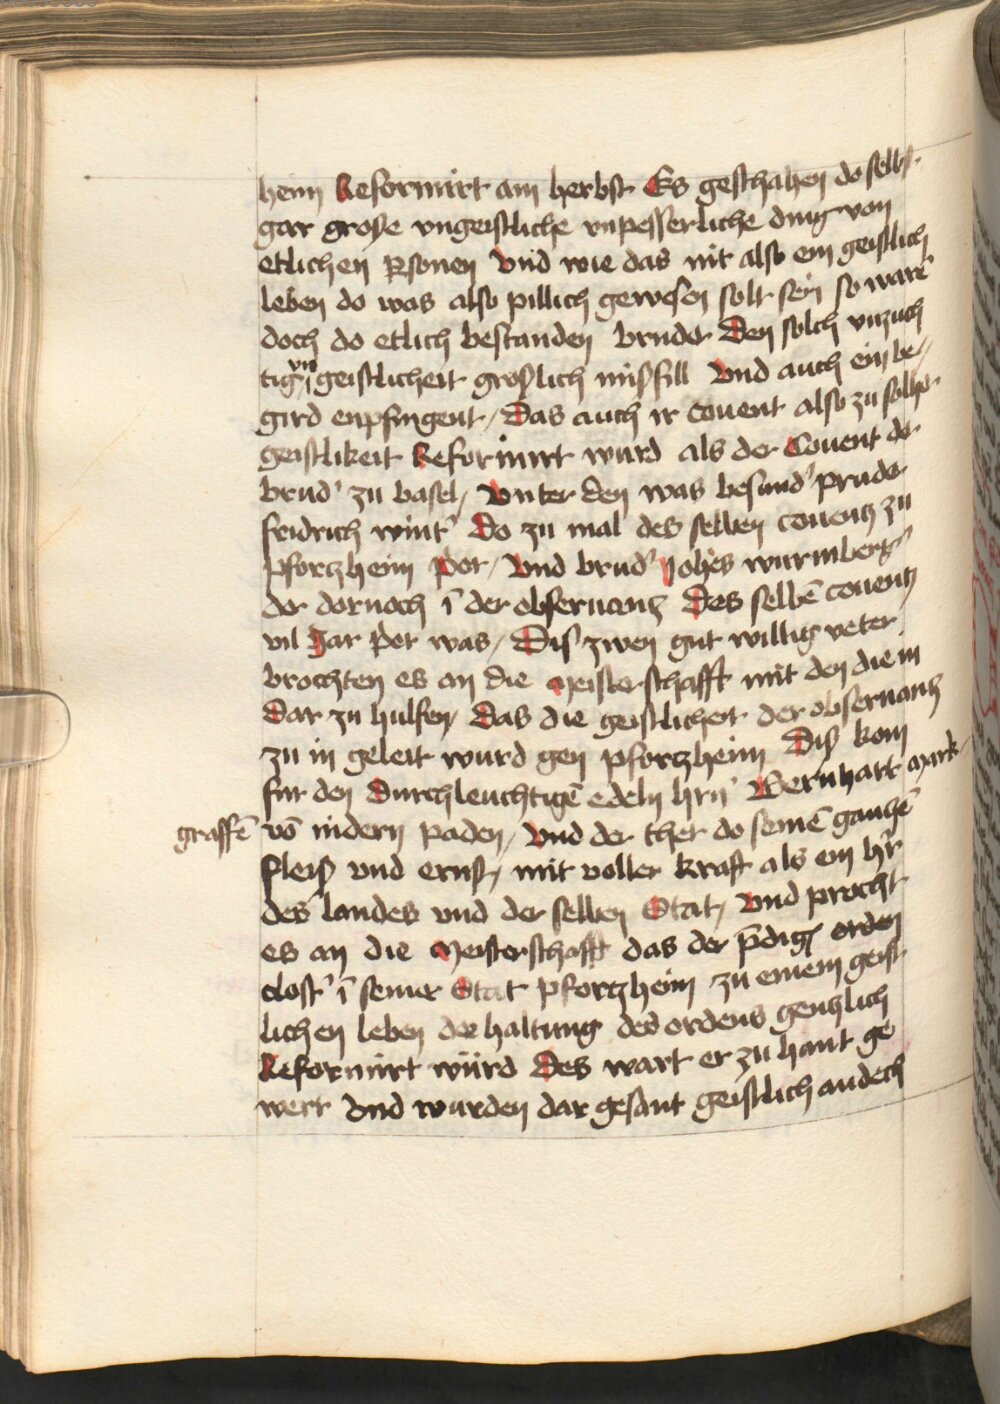 heim Reformirt am herbst Es geschahen do selbst
gar grosse vngeistliche vnpesserliche ding von
etlichen ꝑsonen Vnd wie das nit also ein geistlich
leben do was also pillich gewesen solt sein so ware͂
doch do etlich bestanden bruder Den solch vnzuch
tig vn͂ geistlicheit groslich misfill Vnd auch ein be/
gird enpfingent / Das auch ir Couent also zu solher
geistlikeit Reformirt wurd als der Couent der
brud' zu basel / Vnter den was besund' pruder
fridrich wint' Do zu mal des selben couentz zu
pfortzheim p̄or / Vnd brud' Joh̄es wurmberg'
der dornoch ī der obseruantz Des selbē couentz
vil Jar p̄or was / Dis zwen gut willig veter
brochten es an die Meisterschafft mit den die in
Dar zu hulfen / Das die geistlicheit der obseruantz
zu in geleit wurd gen pfortzheim Dis kom
fur den Durchleuchtigē edeln hrn̄ Bernhart Mark/
graffē vō nidern paden / Vnd der ther do seinē gantzē
fleis vnd ernst / mit voller kraft als ein h'r
des landes vnd der selben Stat / Vnd procht
es an die Meisterschafft das der p̄dig' orden
clost' ī seiner Stat pfortzheim zu einem geist
lichen leben der haltung des ordens gentzlich
Reformirt würd Des wart er zu hant ge
wert Vnd wurden dar gesant geistlich andech